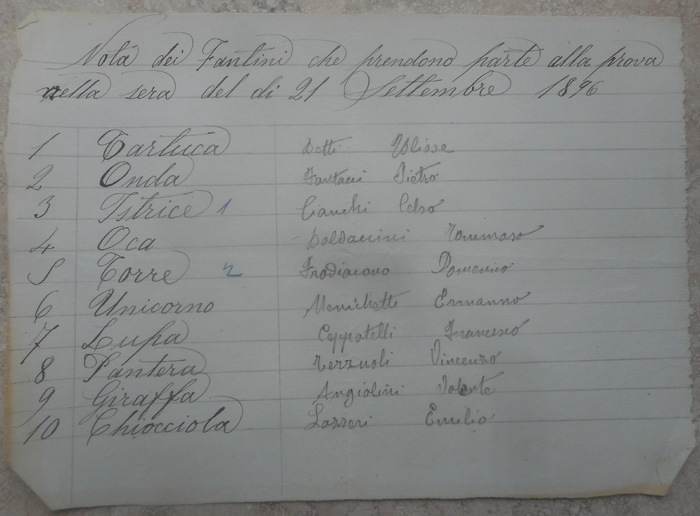 Nota dei Fantini che prendono parte alla prova
nella sera del di 21 Settembre 1896
1 Tartuca Ulisse
2 Onda Fantacci Pietro
3 Istrice 1 Cianchi Celso
4 Oca Baldaccini Tommaso
5 Torre 2 Frodiacono Domenico
6 Unicorno Menichetti Ermanno
7 Lupa Ceppatelli Francesco
8 Pantera Terzuoli Vincenzo
9 Giraffa Angiolini
10 Chiocciola Lazzeri Emilio